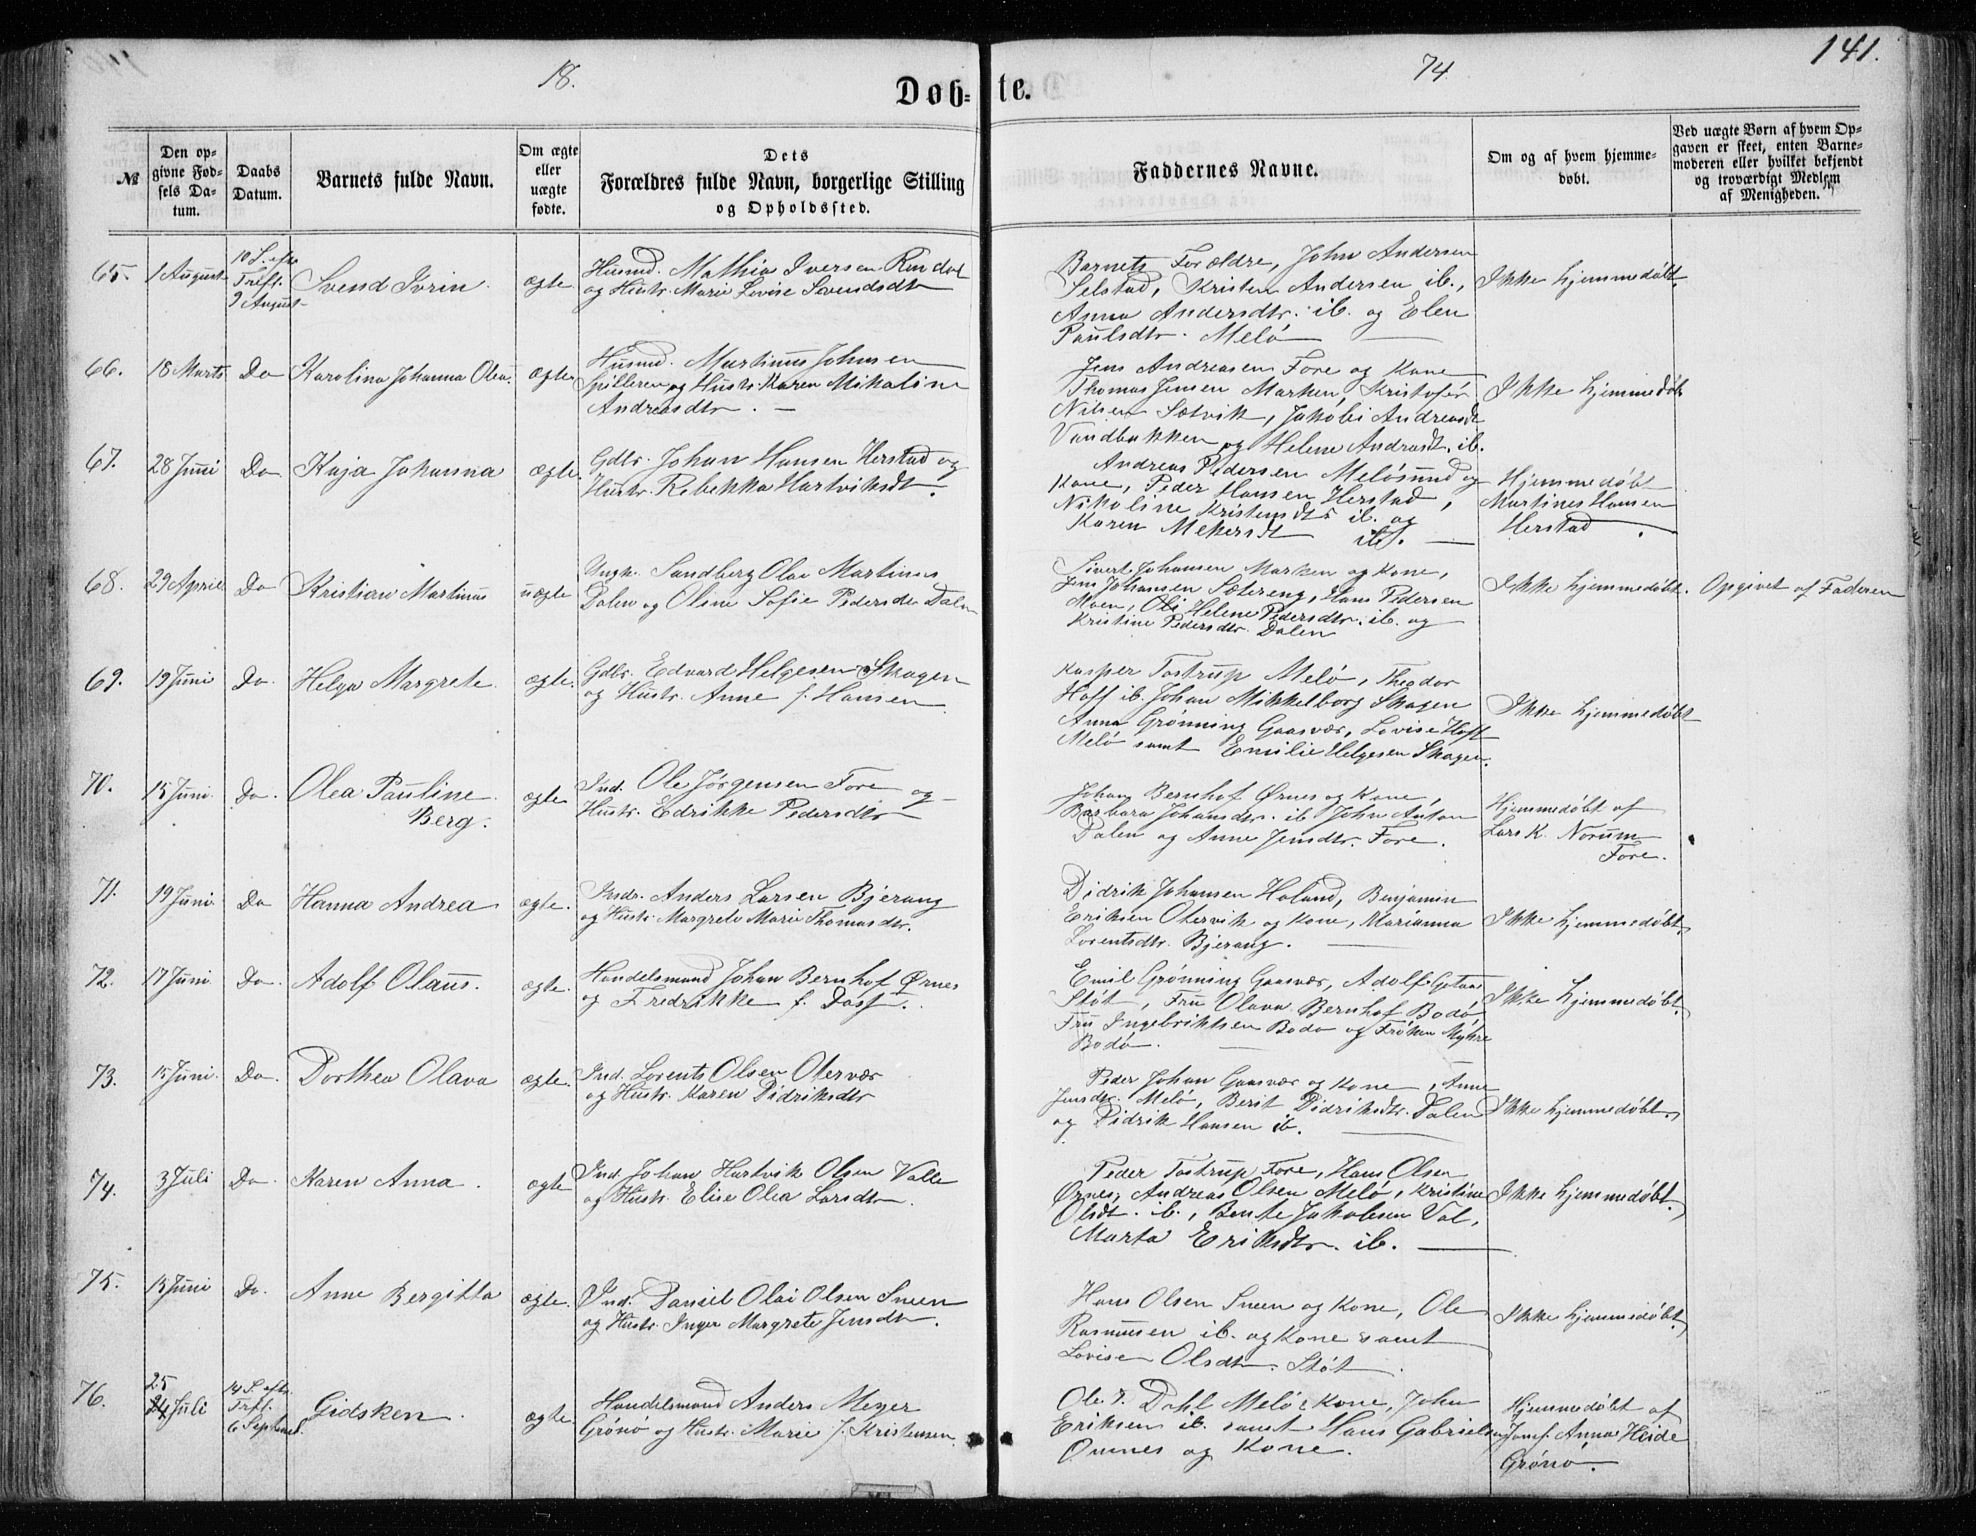 141.
18.
74
Døb-
te.
№
Den op-
givne Fød-
sels Da-
tum.
Daabs
Datum.
Barnets fulde Navn.
Om ægte
eller
uægte
fødte.
Dets
Forældres fulde Navn, borgerlige Stilling
og Opholdssted.
Faddernes Navne.
Om og af hvem hjemme-
døbt.
Ved uægte Børn af hvem Op-
gaven er skeet, enten Barne-
moderen eller hvilket bekjendt
og troværdigt Medlem
af Menigheden.
65.
1 August
10 S. efter
Trefl.
9 August
Svend Ivrin
ægte
Husmd. Mathias Iversen Rendal
og Hustr. Marie Lovise Svendsdtr
Barnets Forældre, John Andersen
Selstad, Kristen Andersen ib.,
Anna Andersdtr. ib. og Elen
Paulsdtr. Melø
Ikke hjemmedøbt.
66.
18 Marts
Do
Karolina Johanna Olea.
ægte
Husmd. Martinus Johnsen
Spilderen og Hustr. Karen Mikaline
Andreasdtr. —
Jens Andreasen Fore og Kone
Thomas Jensen Marken, Kristofer
Nilsen Sætvik, Jakobi Andreasdt
Vandbakken og Helene Andreasdt. ib.
Ikke hjemmedøbt
67.
28 Juni
Do
Kaja Johanna
ægte
Gdbr. Johan Hansen Herstad og
Hustr. Rebekka Hartviksdt.
Andreas Pedersen Meløsund og
Kone, Peder Hansen Herstad,
Nikoline Kristensdtr ib. og
Karen Mekersdt ib. —
Hjemmedøbt
Martines Hansen
Herstad.
68.
29 April
Do
Kristian Martinus
uægte
Ungk. Sandberg Olai Martinus
Dalen og Oline Sofie Pedersdtr Dalen
Sivert Johansen Marken og Kone,
Jens Johansen Sætereng, Hans Pedersen
Moen, Oli Helene Pedersdtr. ib. og
Kristine Pedersdtr. Dalen
Ikke hjemmedøbt.
Opgivet af Faderen
69.
19 Juni
Do.
Helga Margrete
ægte.
Gdbr. Edvard Helgesen Skagen
og Hustr. Anne f. Hansen
Kasper Tostrup Melø, Theodor
Hoff ib. Johan Mikkelborg Skagen
Anna Grønning Gaasvær, Lovise Hoff
Melø samt Emilie Helgesen Skagen.
Ikke hjemmedøbt
70.
15 Juni
Do.
Olea Pauline
Berg.
ægte
Ind. Ole Jørgensen Fore og
Hustr. Edrikke Pedersdtr
Johan Bernhof Ørnes og Kone,
Barbara Johansdtr. ib John Anton
Dalen og Anne Jensdtr. Fore.
Hjemmedøbt af
Lars K. Norum
Fore.
71.
19 Juni
Do
Hanna Andrea
ægte.
Indr. Anders Larsen Bjerang
og Hustr. Margrete Marie Thomasdtr.
Didrik Johansen Holand, Benjamin
Eriksen Otervik og Kone, Marianna
Lorentsdtr. Bjerang. —
Ikke hjemmedøbt
72.
17 Juni
Do
Adolf Olaus.
ægte.
Handelsmand Johan Bernhof Ørnes
og Fredrikke f. Dass.
Emil Grønning Gaasvær, Adolf Gotaas
Støt, Fru Olava Bernhof Bodø,
Fru Ingebriktsen Bodø og Frøken Myhre
Bodø. —
Ikke hjemmedøbt.
73.
15 Juni
Do.
Dorthea Olava
ægte.
Ind. Lorents Olsen Otervær
og Hustr. Karen Didriksdtr
Peder Johan Gaasvær og Kone, Anne
Jensdtr. Melø, Berit Didriksdtr. Dalen
og Didrik Hansen ib. —
Ikke hjemmedøbt.
74.
3 Juli
Do
Karen Anna.
ægte
Ind. Johan Hartvik Olsen Valle
og Hustr. Elise Olea Larsdtr.
Peder Tostrup Fore, Hans Olsen
Ørnes, Andreas Olsen Melø, Kristine
Olsdt. ib., Bente Jakobsen Val,
Marta Eriksdtr. ib. —
Ikke hjemmedøbt.
75.
15 Juni
Do.
Anne Bergitta
ægte.
Ind. Daniel Olai Olsen Sneen
og Hustr. Inger Margrete Jensdtr.
Hans Olsen Sneen og Kone, Ole
Rasmussen ib. og Kone samt
Lovise Olsdtr. Støt.
Ikke hjemmedøbt
76.
25
24 Juli
14 S. eftr.
Trefl.
6 Septembr.
Gidsken.
ægte
Handelsmand Anders Meyer
Grønø og Hustr. Marie f. Kristensen
Ole P. Dahl Melø & Kone, John
Eriksen ib. samt Hans Gabrielsen
Ørnes og Kone.
Hjemmedøbt af
Jomf. Anna Heide
Grønø.